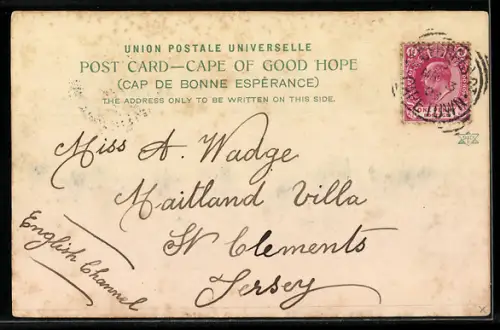 UNION POSTALE UNIVERSELLE
POST CARD—CAPE OF GOOD HOPE
(CAP DE BONNE ESPÉRANCE)
THE ADDRESS ONLY TO BE WRITTEN ON THIS SIDE.
Miss A. Wadge
Maitland Villa
St Clements
Jersey
English Channel